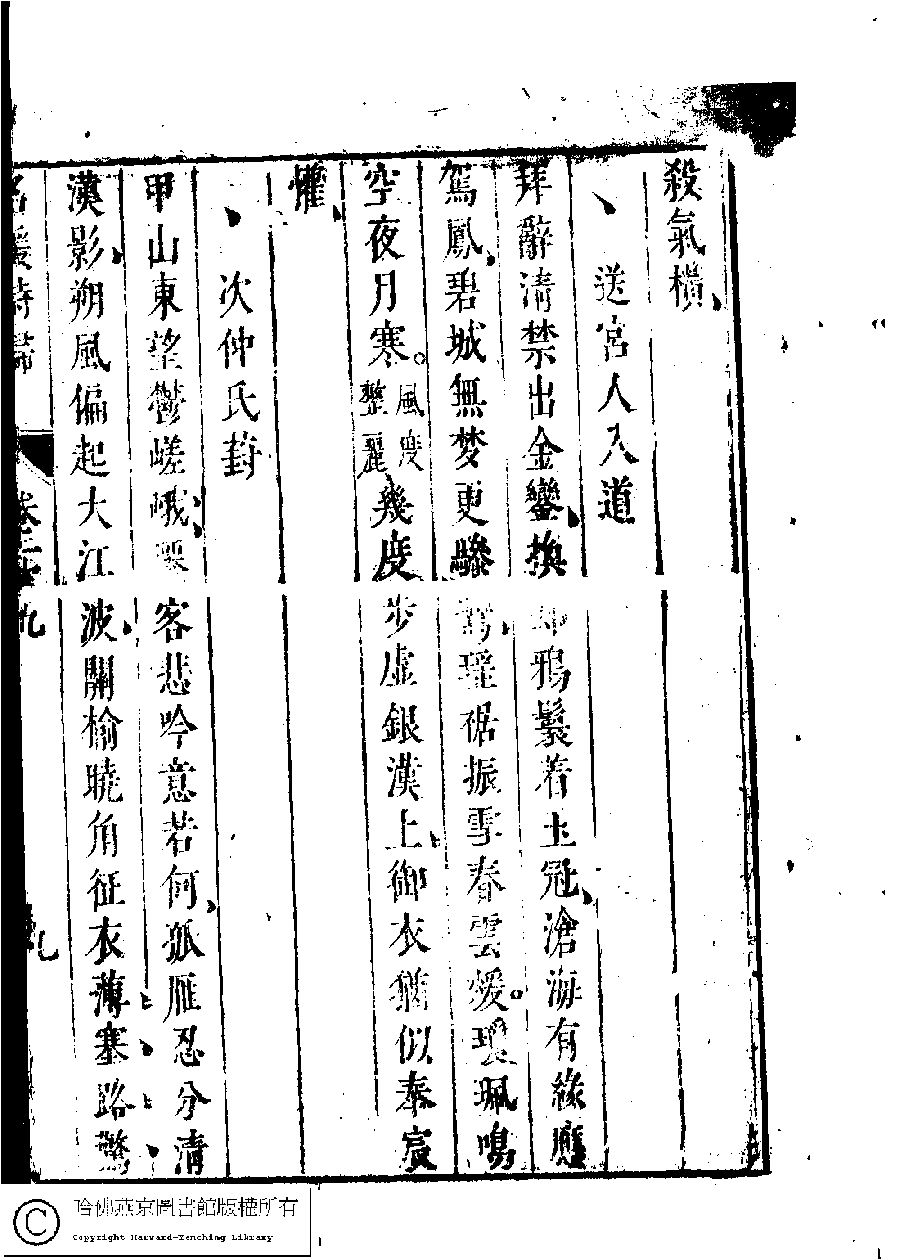 殺氣橫
送宮人入道
拜辭清禁出金鑾換却鴉鬟着玉冠滄海有緣應
駕鳳碧城無夢更驂鸞瑤裾振雪春雲煖。瓊珮鳴
空夜月寒。風度整麗幾度步虛銀漢上御衣猶似奉宸
懽
次仲氏葑
甲山東望鬱嵯峨客悲吟意若何孤雁忍分清
漢影朔風偏起大江波關榆曉角征衣薄塞路驚
名媛詩歸
九
哈佛燕京圖書館版權所有
Copyright Harvard-Yenching Library